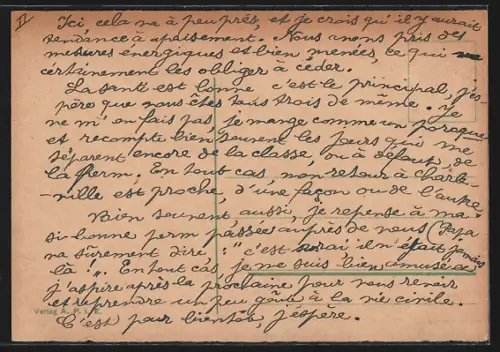 II
Ici cela va à peu près, et je crois qu'il y aurait
tendance à apaisement. Nous avons pris des
mesures énergiques et bien menées, ce qui va
certainement les obliger à céder.
La santé est bonne c'est le principal, j'es-
père que vous êtes tous trois de même. Je
ne m'en fais pas, je mange comme un
et recompte bien souvent les jours qui me
séparent encore de la classe, ou à défaut, de
la perm. En tout cas mon retour à Charle-
ville est proche, d'une façon ou de l'autre.
Bien souvent aussi, je repense à ma
si bonne perm passée auprès de vous (Papa
va sûrement dire : "c'est vrai il n'était jamais
là". En tout cas, je me suis bien amusé et
j'aspire après la prochaine pour vous revoir
et reprendre un peu goût à la vie civile.
Verlag A. P. i. E.
C'est pour bientôt, j'espère.